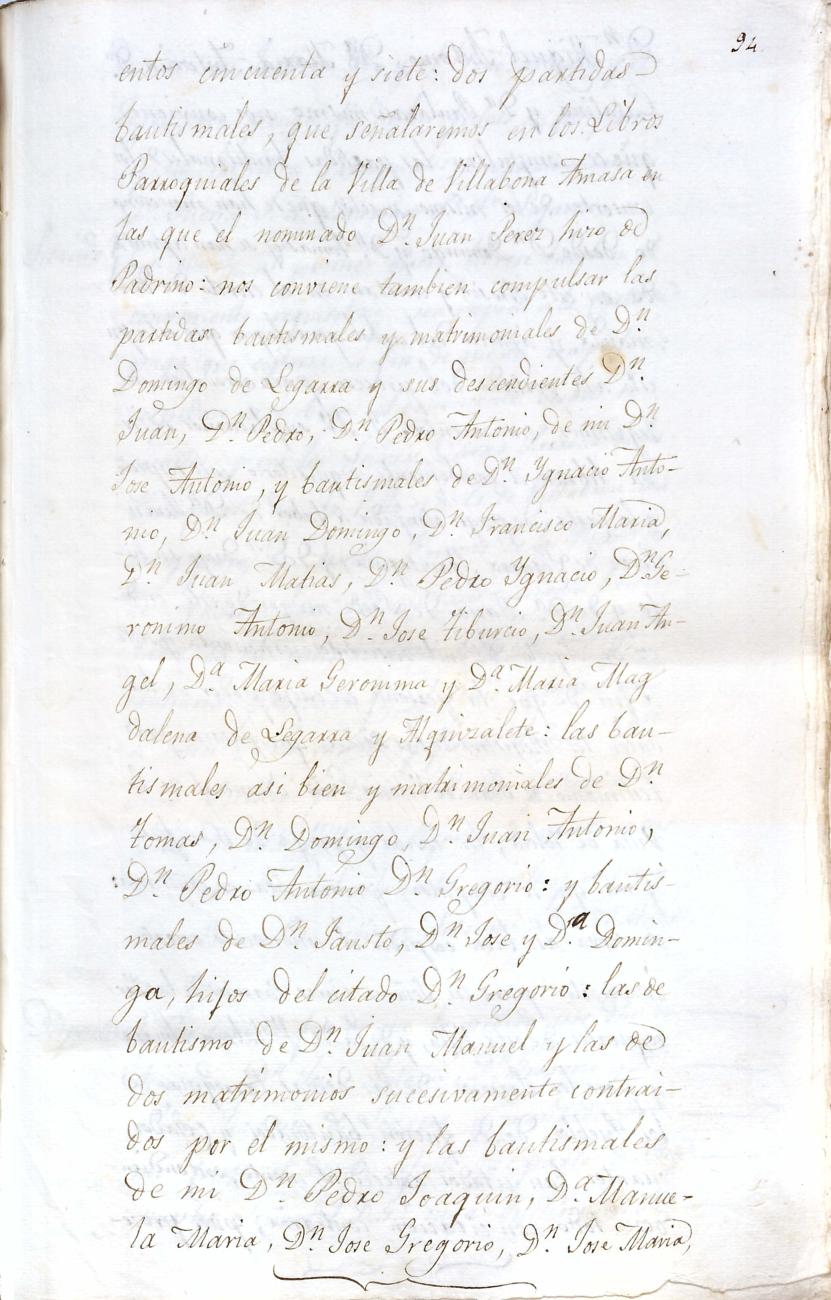 94
entos cincuenta y siete: dos partidas
bautismales, que señalaremos en los Libros
Parroquiales de la Villa de Villabona Amasa en
las que el nominado Dn. Juan Perez hizo de
Padrino: nos conviene tambien compulsar las
partidas bautismales y matrimoniales de Dn.
Domingo de Legarra y sus descendientes Dn.
Juan, Dn. Pedro, Dn. Pedro Antonio, de mi Dn.
Jose Antonio, y bautismales de Dn. Ygnacio Anto-
nio, Dn. Juan Domingo, Dn. Francisco Maria,
Dn. Juan Matias, Dn. Pedro Ygnacio, Dn. Ge-
ronimo Antonio, Dn. Jose Tiburcio, Dn. Juan An-
gel, Da. Maria Geronima y Da. Maria Mag
dalena de Legarra y Alquizalete: las bau-
tismales asi bien y matrimoniales de Dn.
Tomas, Dn. Domingo, Dn. Juan Antonio,
Dn. Pedro Antonio Dn. Gregorio: y bautis-
males de Dn. Fausto, Dn. Jose y Da. Domin-
ga, hijos del citado Dn. Gregorio: las de
bautismo de Dn. Juan Manuel y las de
dos matrimonios sucesivamente contrai-
dos por el mismo: y las bautismales
de mi Dn. Pedro Joaquin, Da. Manue-
la Maria, Dn. Jose Gregorio, Dn. Jose Maria,